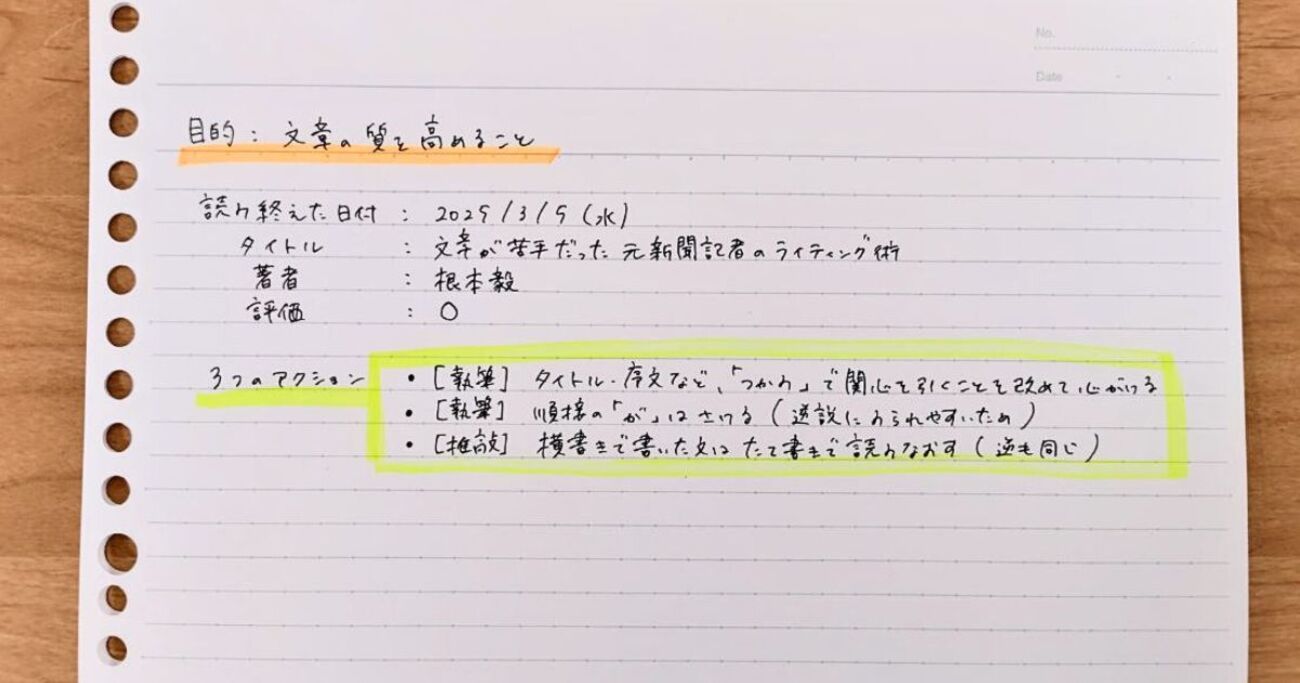 No.
Date
目的: 文章の質を高めること
読み終えた日付 : 2025/3/5 (水)
タイトル : 文章が苦手だった元新聞記者のライティング術
著者 : 根本毅
評価 : ○
3つのアクション ・[執筆] タイトル・序文など、「つかみ」で関心を引くことを改めて心がける
・[執筆] 順接の「が」はさける (逆説にみられやすいため)
・[推敲] 横書きで書いた文はたて書きで読みなおす (逆も同じ)